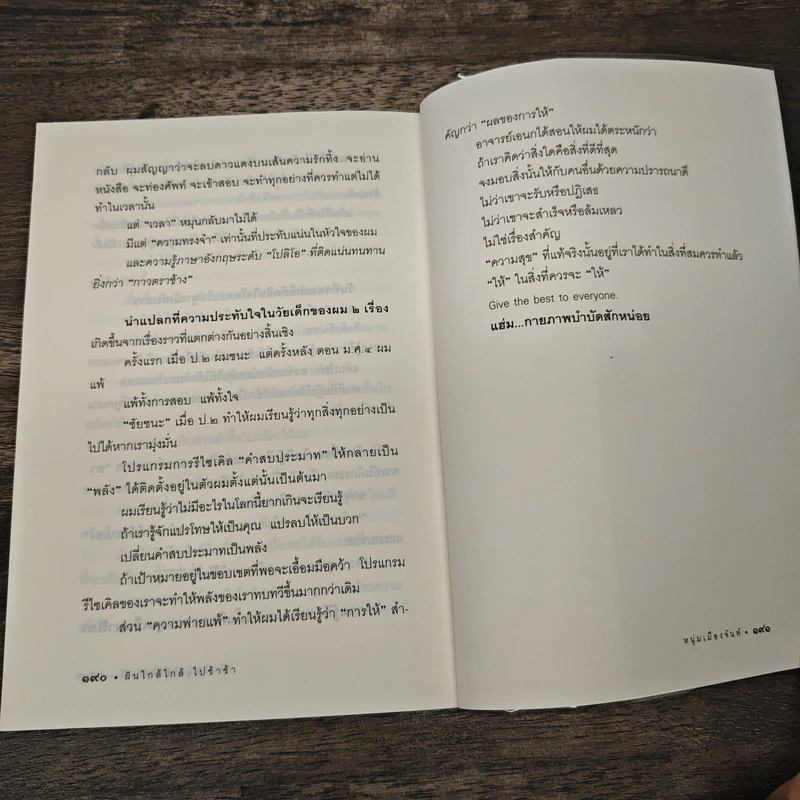 กลับ ผมสัญญาว่าจะลบดาวแดงบนเส้นความรักทิ้ง จะอ่าน
หนังสือ จะท่องศัพท์ จะเข้าสอบ จะทำทุกอย่างที่ควรทำแต่ไม่ได้
ทำในเวลานั้น
แต่ “เวลา” หมุนกลับมาไม่ได้
มีแต่ “ความทรงจำ” เท่านั้นที่ประทับแน่นในหัวใจของผม
และความรู้ภาษาอังกฤษระดับ “โปลิโอ” ที่ติดแน่นทนทาน
ยิ่งกว่า “กาวตราช้าง”
น่าแปลกที่ความประทับใจในวัยเด็กของผม ๒ เรื่อง
เกิดขึ้นจากเรื่องราวที่แตกต่างกันอย่างสิ้นเชิง
ครั้งแรก เมื่อ ป.๒ ผมชนะ แต่ครั้งหลัง ตอน ม.ศ.๔ ผม
แพ้
แพ้ทั้งการสอบ แพ้ทั้งใจ
“ชัยชนะ” เมื่อ ป.๒ ทำให้ผมเรียนรู้ว่าทุกสิ่งทุกอย่างเป็น
ไปได้หากเรามุ่งมั่น
โปรแกรมการรีไซเคิล “คำสบประมาท” ให้กลายเป็น
“พลัง” ได้ติดตั้งอยู่ในตัวผมตั้งแต่นั้นเป็นต้นมา
ผมเรียนรู้ว่าไม่มีอะไรในโลกนี้ยากเกินจะเรียนรู้
ถ้าเรารู้จักแปรโทษให้เป็นคุณ แปรลบให้เป็นบวก
เปลี่ยนคำสบประมาทเป็นพลัง
ถ้าเป้าหมายอยู่ในขอบเขตที่พอจะเอื้อมมือคว้า โปรแกรม
รีไซเคิลของเราจะทำให้พลังของเราทบทวีขึ้นมากกว่าเดิม
ส่วน “ความพ่ายแพ้” ทำให้ผมได้เรียนรู้ว่า “การให้” สำ-
๑๙๐ • ฝันใกล้ใกล้ ไปช้าช้า
คัญกว่า “ผลของการให้”
อาจารย์เอนกได้สอนให้ผมได้ตระหนักว่า
ถ้าเราคิดว่าสิ่งใดคือสิ่งที่ดีที่สุด
จงมอบสิ่งนั้นให้กับคนอื่นด้วยความปรารถนาดี
ไม่ว่าเขาจะรับหรือปฏิเสธ
ไม่ว่าเขาจะสำเร็จหรือล้มเหลว
ไม่ใช่เรื่องสำคัญ
“ความสุข” ที่แท้จริงนั้นอยู่ที่เราได้ทำในสิ่งที่สมควรทำแล้ว
“ให้” ในสิ่งที่ควรจะ “ให้”
Give the best to everyone.
แฮ่ม...กายภาพบำบัดสักหน่อย
หนุ่มเมืองจันท์ • ๑๙๑